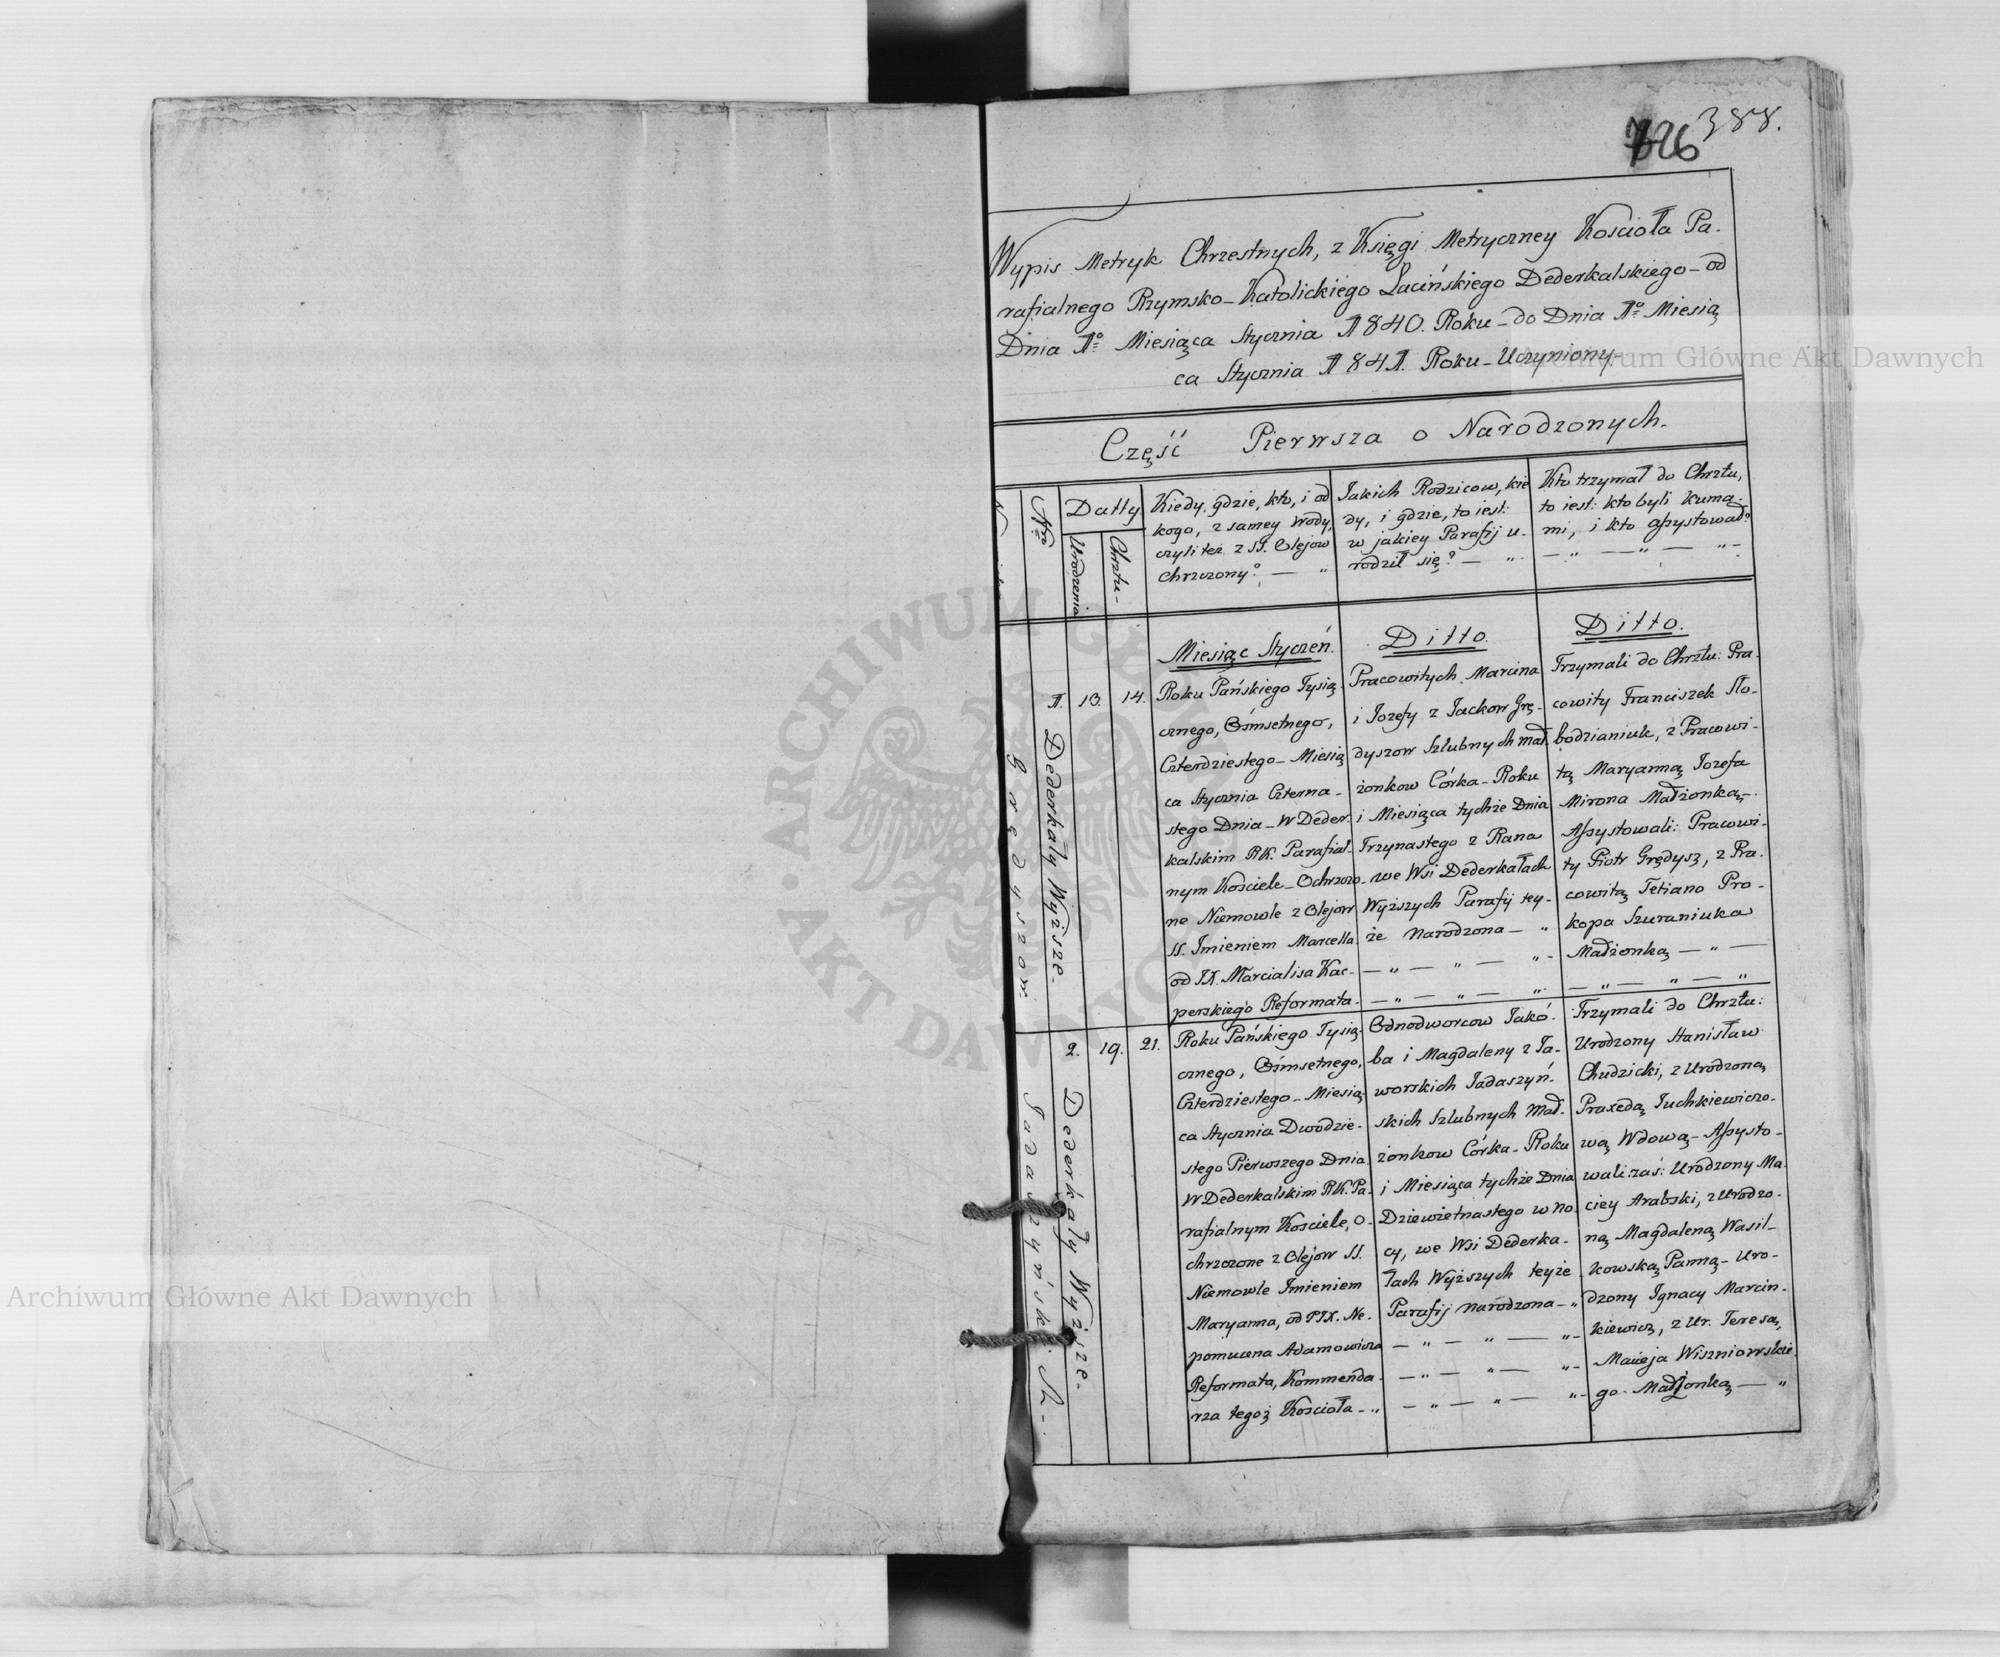 388.
726
Wypis Metryk Chrzestnych, z Księgi Metryczney Kościoła Pa-
rafialnego Rzymsko-Katolickiego Łacińskiego Dederkalskiego - od
Dnia 1º Miesiąca Stycznia 1840. Roku - do Dnia 1º Miesią
ca Stycznia 1841. Roku - Uczyniony.
Część Pierwsza o Narodzonych.
Nro
Datty
Urodzenia
Chrztu -
Kiedy, gdzie, kto, i od
kogo, z samey Wody,
czyli też z SS. Olejow
chrzczony? — "
Jakich Rodzicow, kie
dy, i gdzie, to iest:
w jakiey Parafij u-
rodził się? — "
Kto trzymał do Chrztu,
to iest: kto byli kuma-
mi, i kto assystował?
— " — " — " -
Grędyszow.
Dederkały Wyższe.
1. 13. 14.
Miesiąc Styczeń.
Roku Pańskiego Tysią-
cznego, Ośmsetnego,
Czterdziestego - Miesią
ca Stycznia Czterna-
stego Dnia - W Deder-
kalskim RK. Parafial-
nym Kościele - Ochrzczo-
ne Niemowle z Olejow
SS. Imieniem Marcella
od JX. Marcialisa Kac-
perskiego Reformata.
Ditto.
Pracowitych Marcina
i Jozefy z Jackow Grę-
dyszow Szlubnych mał-
żonkow Córka - Roku
i Miesiąca tychże Dnia
Trzynastego z Rana
we Wsi Dederkałach
Wyższych Parafij tey-
że narodzona — "
— " — " — " -
— " — " — "
Ditto.
Trzymali do Chrztu: Pra-
cowity Franciszek Sło-
bodzianiuk, z Pracowi-
tą Maryanną Jozefa
Mirona Małżonką -
Assystowali: Pracowi-
ty Piotr Grędysz, z Pra-
cowitą Tetiano Pro-
kopa Szuraniuka
Małżonką — " —
— " — " — "
Dederkały Wyższe -
2. 19. 21.
Roku Pańskiego Tysią-
cznego, Ośmsetnego,
Czterdziestego - Miesią
ca Stycznia Dwódzie-
stego Pierwszego Dnia
W Dederkalskim RK. Pa-
rafialnym Kościele, o-
chrzczone z Olejow SS.
Niemowle Imieniem
Maryanna, od PJX. Ne-
pomucena Adamowicza
Reformata, Kommenda-
rza tegoż Kościoła - "
Odnodworcow Jakó-
ba i Magdaleny z Ja-
worskich Jadaszyń-
skich Szlubnych Mał-
żonkow Córka - Roku
i Miesiąca tychże Dnia
Dziewietnastego w No-
cy, we Wsi Dederka-
łach Wyższych teyże
Parafij narodzona - "
— " — " — " -
— " — " — " -
— " — " — " -
Trzymali do Chrztu:
Urodzony Stanisław
Chudzicki, z Urodzoną
Praxedą Juchkiewiczo-
wą Wdową - Assysto-
wali zaś: Urodzony Ma-
ciey Arabski, z Urodzo-
ną Magdaleną Wasil-
kowską Panną - Uro-
dzony Ignacy Marcin-
kiewicz, z Ur. Teresą,
Macieja Wiszniowskie-
go Małżonką — "
Archiwum Główne Akt Dawnych
Archiwum Główne Akt Dawnych